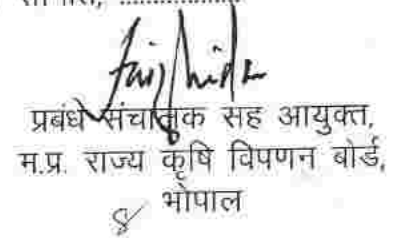 प्रबंध संचालक सह आयुक्त,
म.प्र. राज्य कृषि विपणन बोर्ड,
भोपाल